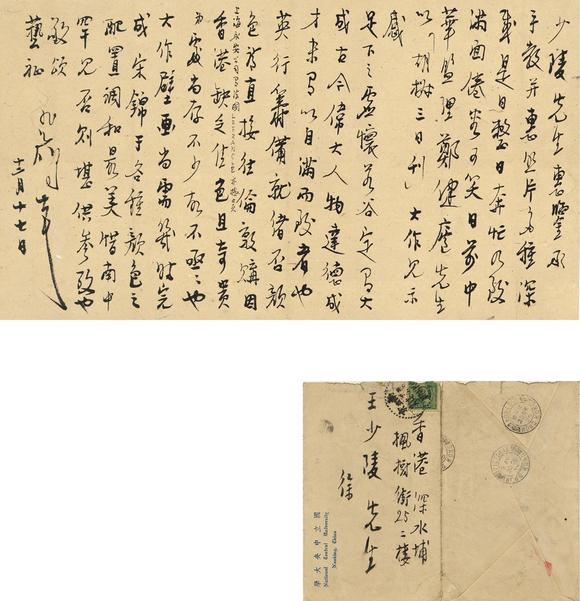 少陵先生惠鑒承
手教并惠照片多種深
幸是日整日奔忙乃致
滿面倦容可笑日前中
華監理鄭健廬先生
以 三日刊 大作見示
感
足下之虛懷若谷定為大
成古今偉大人物達德成
才未有以自滿而致者也
英行 備就緒否顏
色 直接往倫敦購因
上海永安公司有法國LEFRANC
香港缺乏佳色且奇貴
處尚存不少故不亟亟也
大作壁畫尚需幾時完
成宋錦于各種顏色之
配置調和最美惜南中
罕見否則堪供參攷也
敬頌
藝祉
悲鴻頓首
十二月十七日
香港深水埔
楓樹街25二樓
王少陵先生
徐
國立中央大學
National Central University
Nanking, China